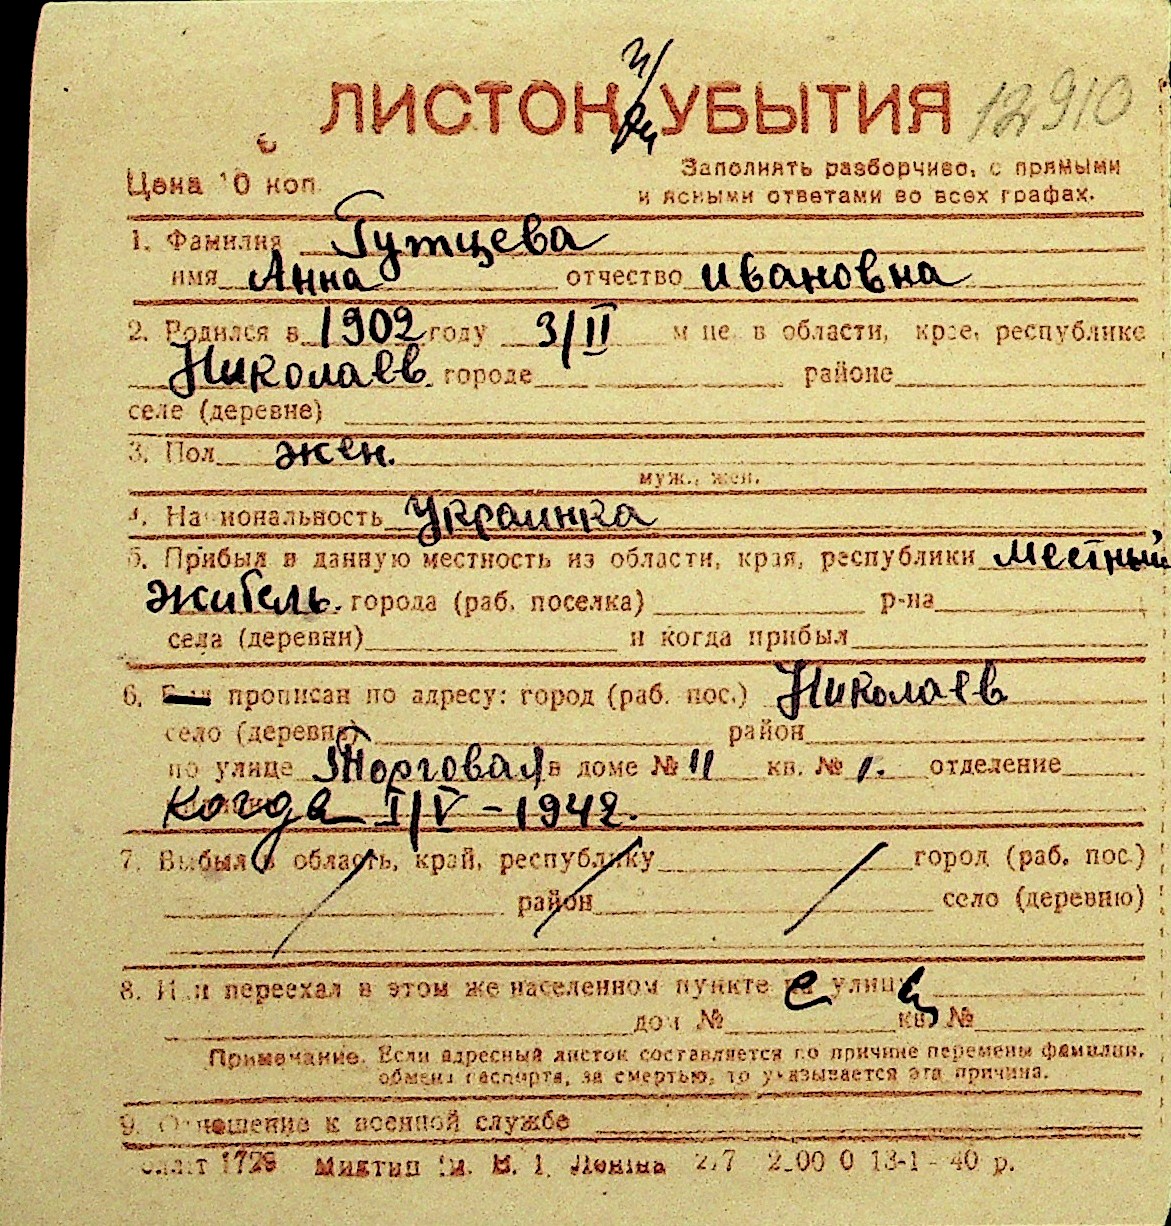 ЛИСТОК УБЫТИЯ 12910
Цена 10 коп.
Заполнять разборчиво, с прямыми
и ясными ответами во всех графах.
1. Фамилия Гутцева
имя Анна отчество Ивановна
2. Родился в 1902 году 3/II м-це, в области, крае, республике
Николаев городе районе
селе (деревне)
3. Пол жен.
муж., жен.
4. Национальность Украинка
5. Прибыл в данную местность из области, края, республики местный
житель. города (раб. поселка) р-на
села (деревни) и когда прибыл
6. прописан по адресу: город (раб. пос.) Николаев
село (деревня) район
по улице Торговая в доме № 11 кв. № 1. отделение
когда I/V-1942.
7. Выбыл в область, край, республику город (раб. пос.)
район село (деревню)
8. Или переехал в этом же населенном пункте улиц
дом № кв. №
Примечание. Если адресный листок составляется по причине перемены фамилии,
обмена паспорта, за смертью, то указывается эта причина.
9. Отношение к военной службе
1728 В. І. Леніна 13-1-40 р.